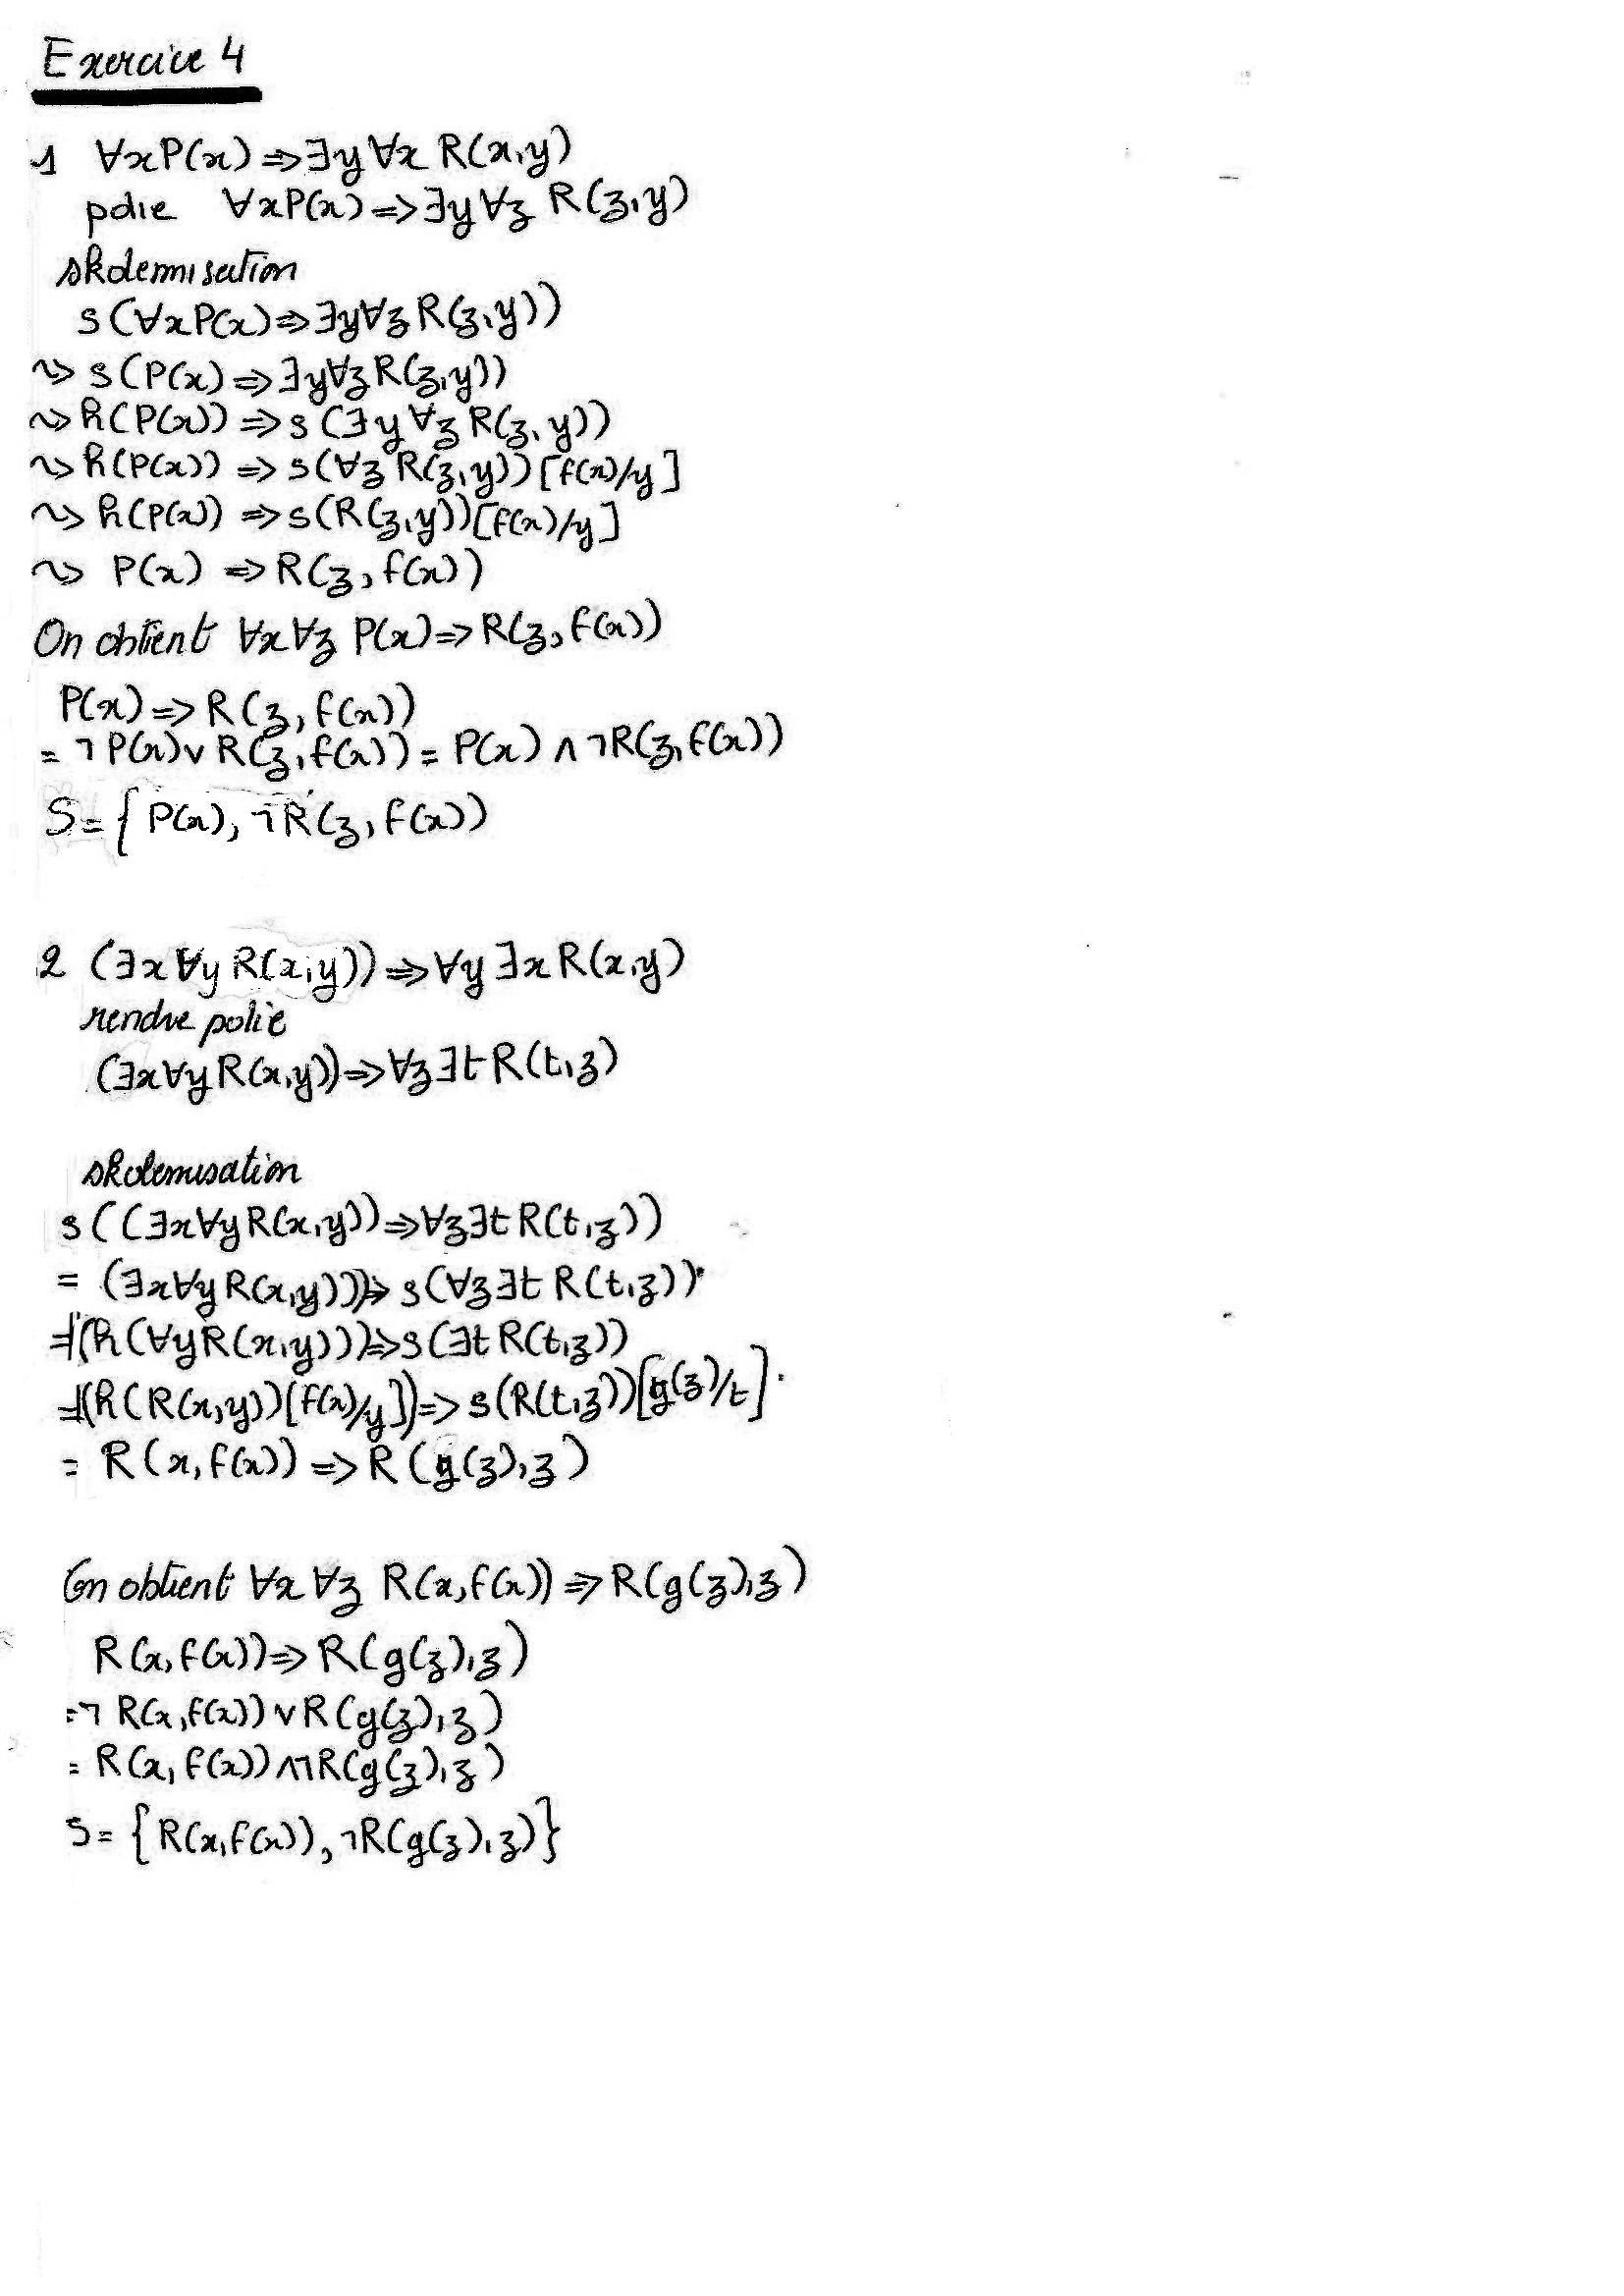 Exercice 4
1 ∀xP(x) => ∃y∀x R(x,y)
polie ∀xP(x) => ∃y∀z R(z,y)
skolemisation
s(∀xP(x) => ∃y∀z R(z,y))
~> s(P(x) => ∃y∀z R(z,y))
~> h(P(x)) => s(∃y∀z R(z,y))
~> h(P(x)) => s(∀z R(z,y))[f(x)/y]
~> h(P(x)) => s(R(z,y))[f(x)/y]
~> P(x) => R(z, f(x))
On obtient ∀x∀z P(x) => R(z, f(x))
P(x) => R(z, f(x))
= ¬P(x) ∨ R(z, f(x)) = P(x) ∧ ¬R(z, f(x))
S = { P(x), ¬R(z, f(x))
2 (∃x∀y R(x,y)) => ∀y∃x R(x,y)
rendre polie
(∃x∀y R(x,y)) => ∀z∃t R(t,z)
skolemisation
s((∃x∀y R(x,y)) => ∀z∃t R(t,z))
= (∃x∀y R(x,y))) => s(∀z∃t R(t,z))
= (h(∀y R(x,y))) => s(∃t R(t,z))
= (h(R(x,y))[f(x)/y]) => s(R(t,z))[g(z)/t]
= R(x, f(x)) => R(g(z),z)
On obtient ∀x∀z R(x, f(x)) => R(g(z),z)
R(x, f(x)) => R(g(z),z)
= ¬R(x, f(x)) ∨ R(g(z),z)
= R(x, f(x)) ∧ ¬R(g(z),z)
S = {R(x, f(x)), ¬R(g(z),z)}